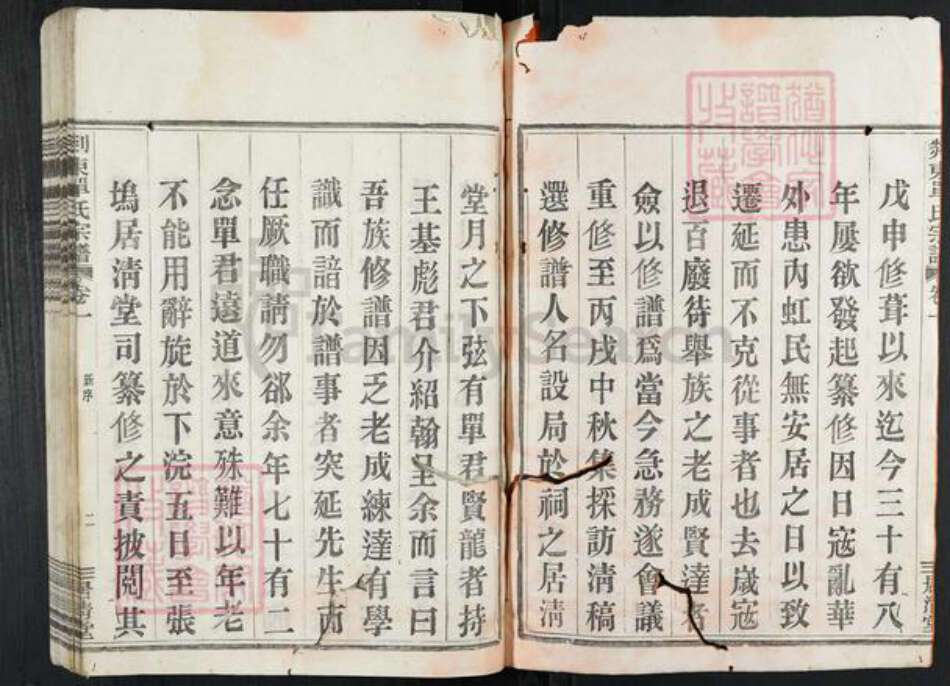 戊申修葺以來迄今三十有八
年屢欲發起纂修因日寇亂華
外患內虹民無安居之日以致
遷延而不克從事者也去歲寇
退百廢待舉族之老成賢達者
僉以修譜爲當今急務遂會議
重修至丙戌中秋集採訪清稿
選修譜人名設局於祠之居清
堂月之下弦有單君賢龍者持
王基彪君介紹翰呈余而言曰
吾族修譜因乏老成練達有學
識而諳於譜事者突延先生而
任厥職請勿郤余年七十有二
念單君遠道來意殊難以年老
不能用辭旋於下浣五日至張
塢居淸堂司纂修之責披閱其
東單氏宗譜
卷一
新序
二
居清堂
FamilySearch